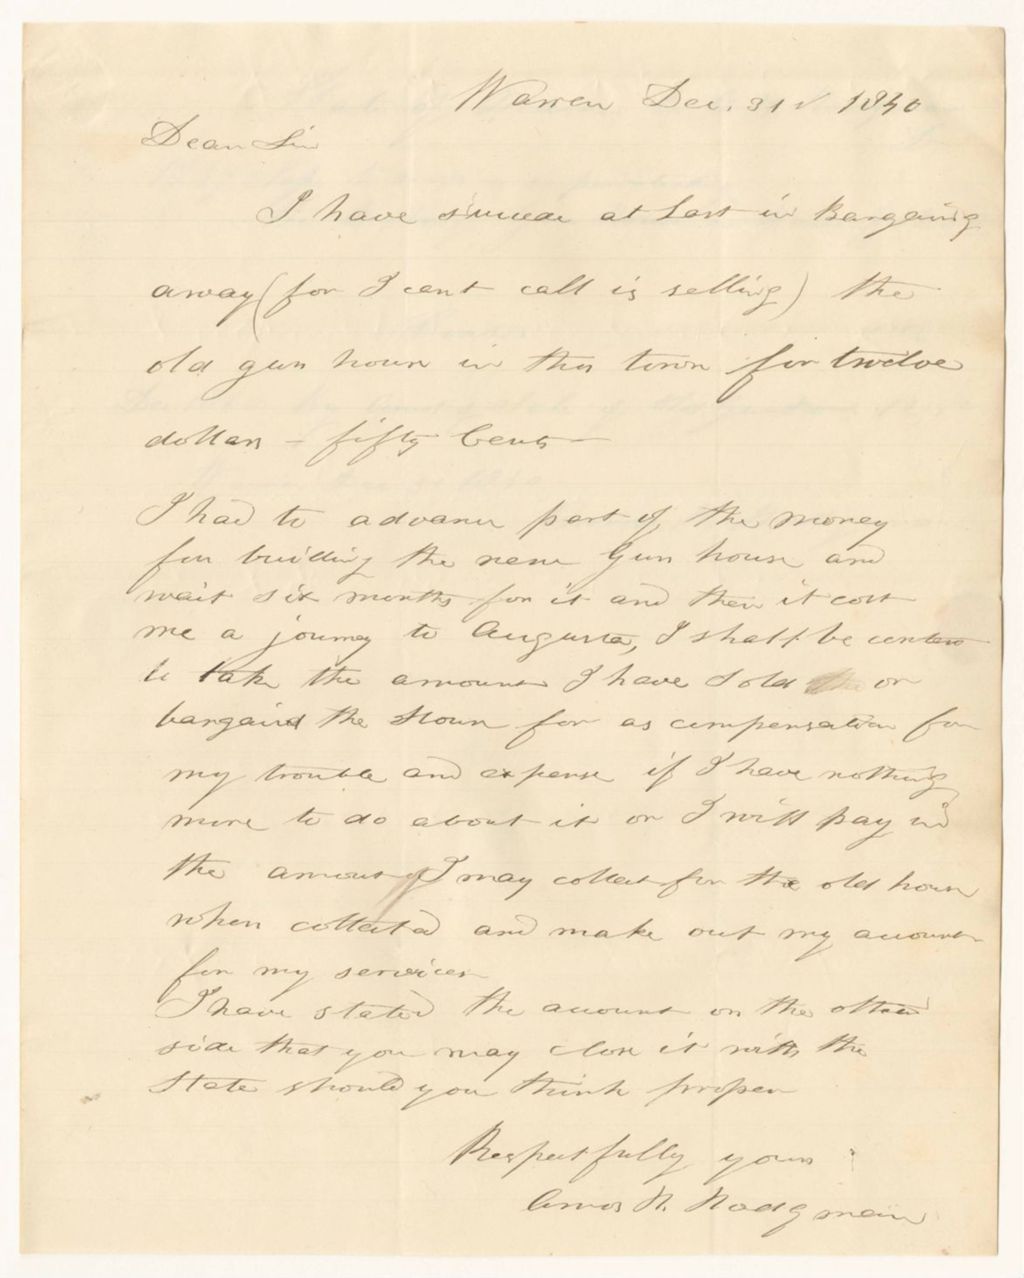 Warren Dec. 31 1840
Dear Sir
I have at last in Bargaing
away (for I cant call is selling) the
old gun house in this town for twelve
dollars - fifty Cents -
I had to advance part of the money
for building the new Gun house and
wait six months for it and then it cost
me a journey to Augusta, I shall be
to take the amount I have Sold or
bargaind the House for as compensation for
my trouble and expense if I have nothing
more to do about it or I will pay in
the amount I may collect for the old house
when collected and make out my account
for my services
I have stated the account on the other
side that you may close it with the
State should you think proper
Respectfully yours
Amos H. Hodgman